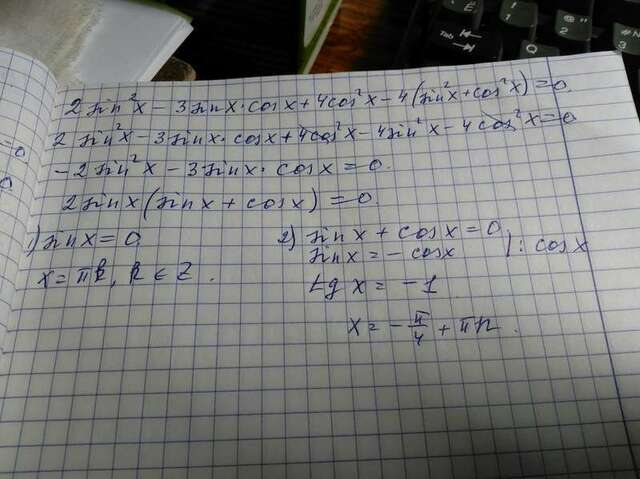 2 sin²x - 3 sinx·cosx + 4cos²x - 4(sin²x + cos²x) = 0.
2 sin²x - 3 sinx·cosx + 4cos²x - 4sin²x - 4cos²x = 0
- 2 sin²x - 3 sinx·cosx = 0.
2 sinx (sinx + cosx) = 0.
1) sinx = 0
x = πk, k ∈ Z.
2) sinx + cosx = 0
sinx = - cosx |: cosx
tg x = -1
x = - π/4 + πn.